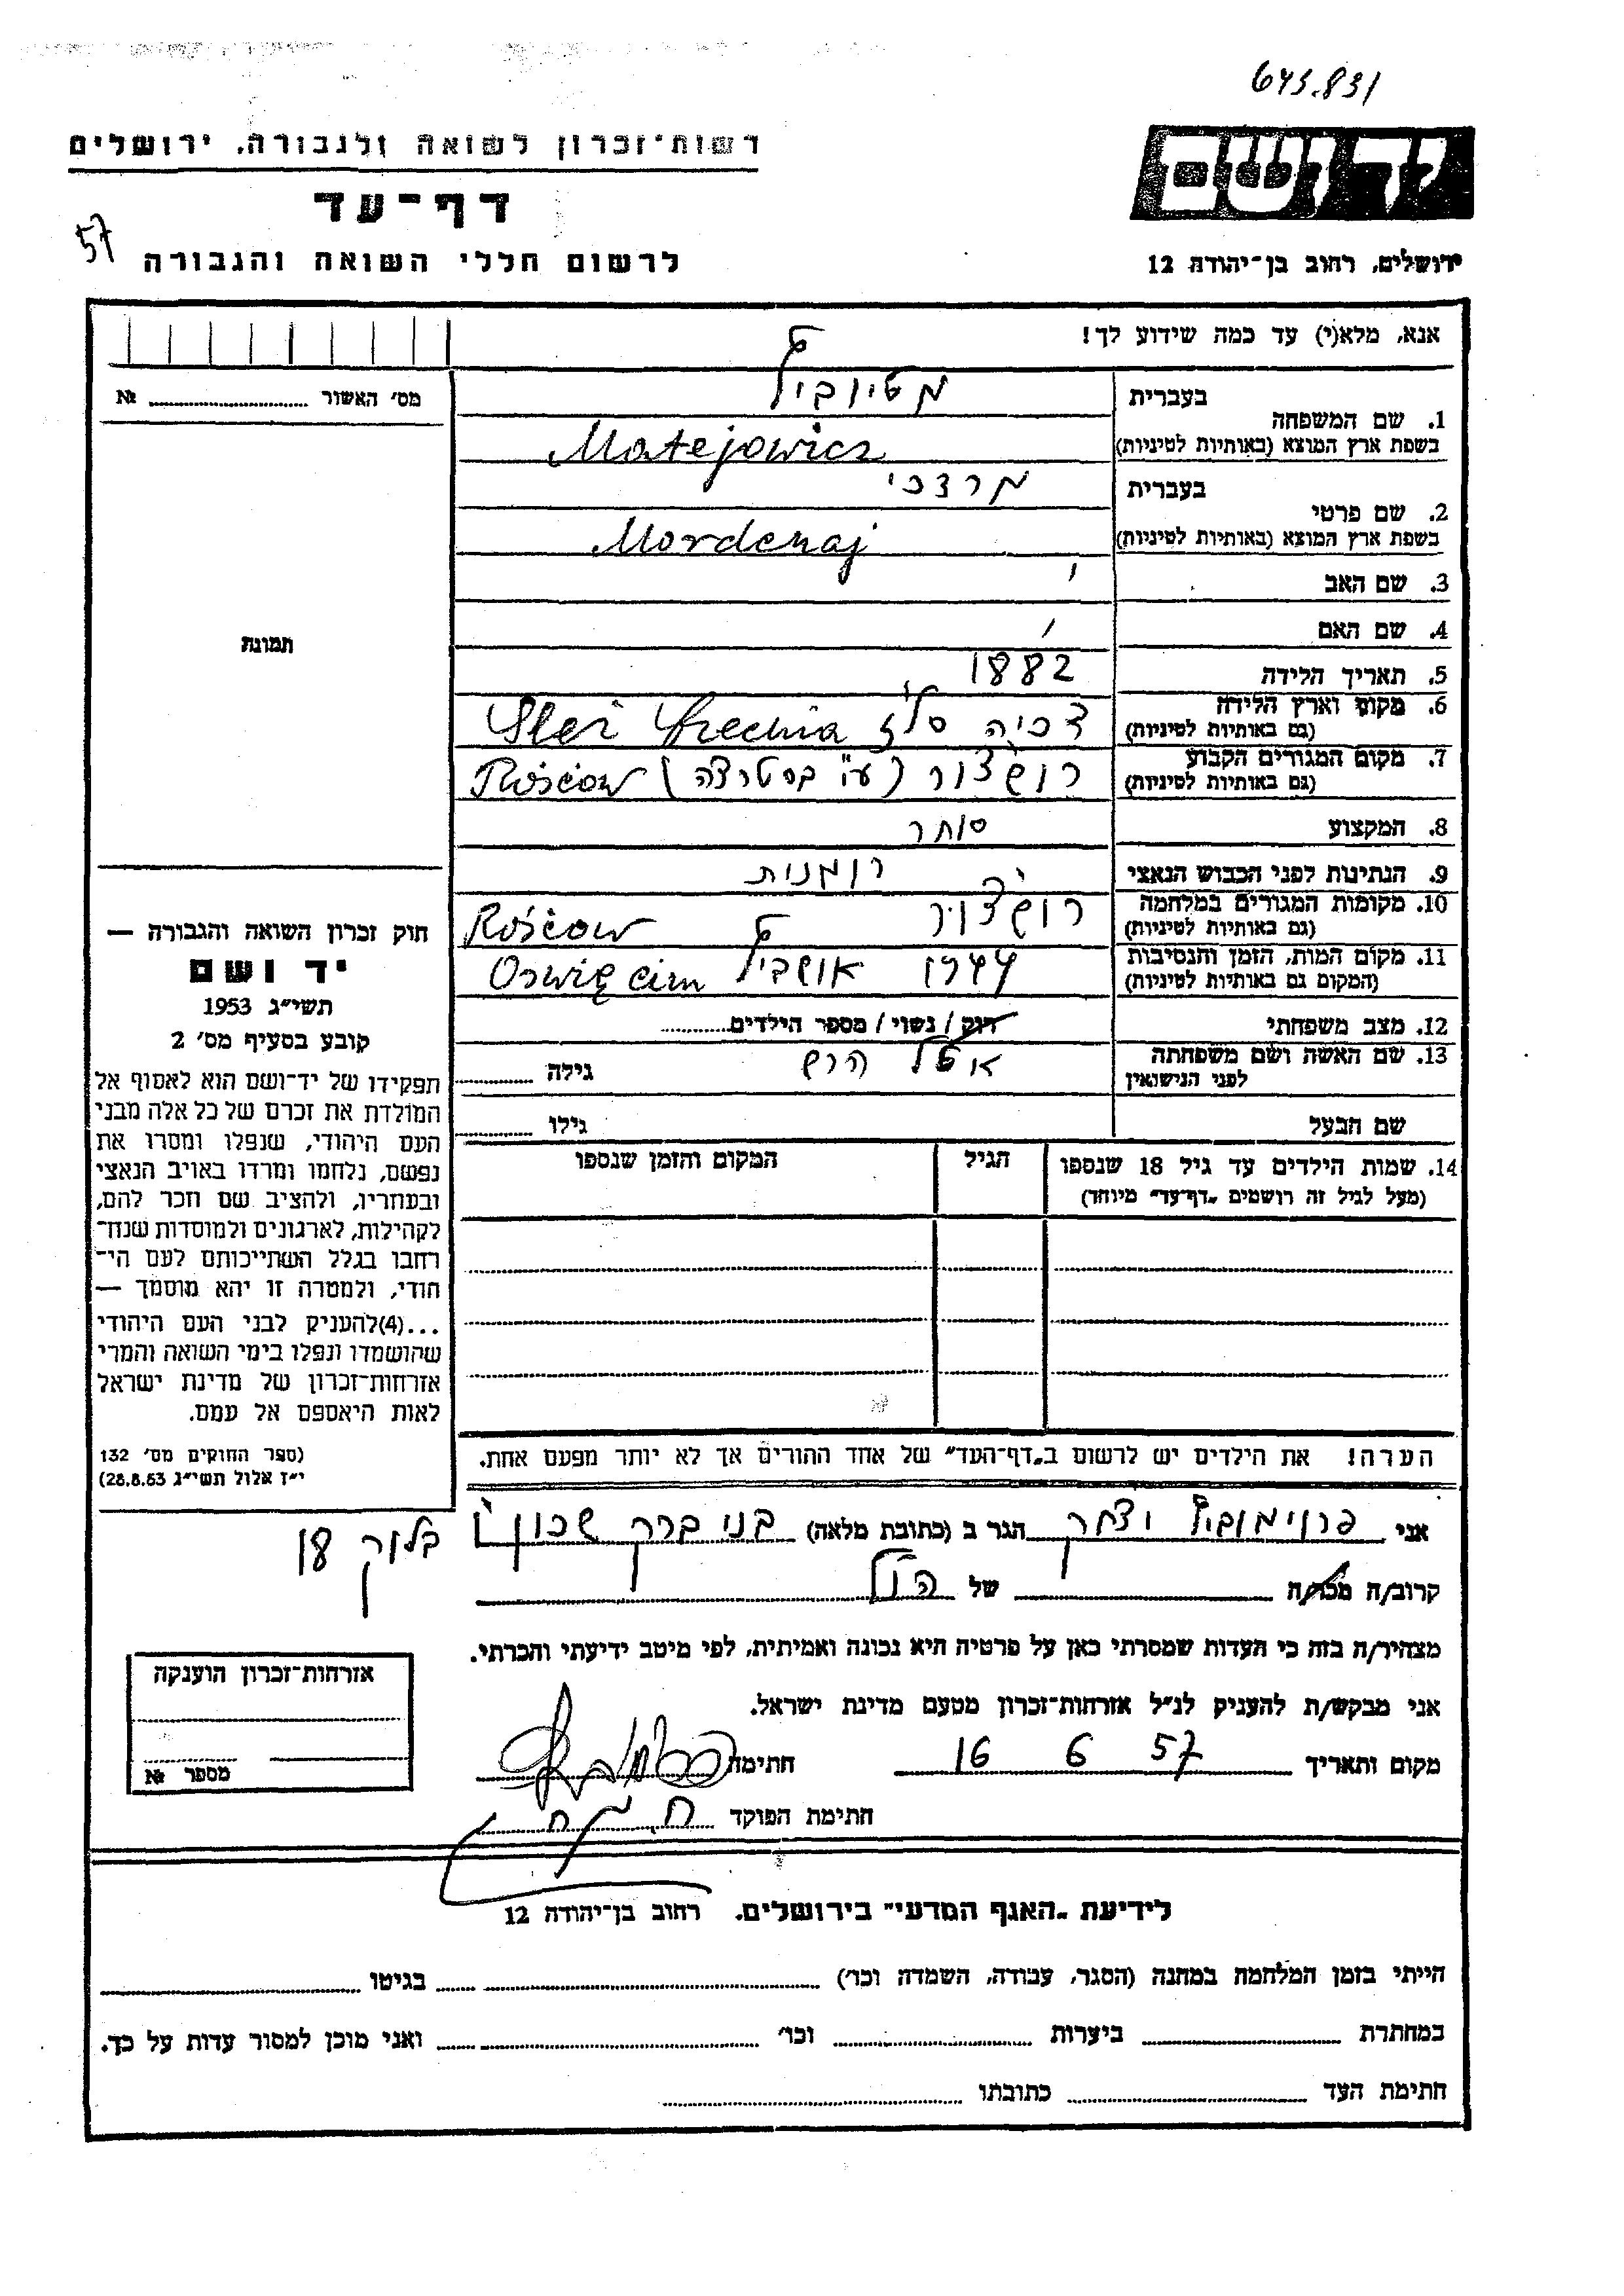 643.831
רשות־זכרון לשואה ולגבורה. ירושלים
דף־עד
57
לרשום חללי השואה והגבורה
ידושם
ירושלים, רחוב בן־יהודה 12
אנא, מלא(י) עד כמה שידוע לך!
מס׳ האשור № 
תמונה
1. שם המשפחה
בעברית
בשפת ארץ המוצא (באותיות לטיניות)
Matejowicz
2. שם פרטי
בעברית מרדכי
בשפת ארץ המוצא (באותיות לטיניות)
3. שם האב
4. שם האם
5. תאריך הלידה 1882
6. מקום וארץ הלידה
(גם באותיות לטיניות)
7. מקום המגורים הקבוע
(גם באותיות לטיניות)
8. המקצוע סוחר
9. הנתינות לפני הכבוש הנאצי רומנית
10. מקומות המגורים במלחמה
(גם באותיות לטיניות)
11. מקום המות, הזמן והנסיבות 1944 Oswięcim
(המקום גם באותיות לטיניות)
12. מצב משפחתי רוק / נשוי / מספר הילדים
13. שם האשה ושם משפחתה
לפני הנישואין
גילה
שם הבעל גילו
14. שמות הילדים עד גיל 18 שנספו הגיל המקום והזמן שנספו
(מעל לגיל זה רושמים „דף־עד״ מיוחד)
הערה! את הילדים יש לרשום ב„דף־העד״ של אחד ההורים אך לא יותר מפעם אחת.
חוק זכרון השואה והגבורה —
יד ושם
תשי״ג 1953
קובע בסעיף מס׳ 2
תפקידו של יד־ושם הוא לאסוף אל
המולדת את זכרם של כל אלה מבני
העם היהודי, שנפלו ומסרו את
נפשם, נלחמו ומרדו באויב הנאצי
ובעוזריו, ולהציב שם וזכר להם,
לקהילות, לארגונים ולמוסדות שנח־
רבו בגלל השתייכותם לעם הי־
הודי, ולמטרה זו יהא מוסמך —
...(4)להעניק לבני העם היהודי
שהושמדו ונפלו בימי השואה והמרי
אזרחות־זכרון של מדינת ישראל
לאות היאספם אל עמם.
(ספר החוקים מס׳ 132
י״ז אלול תשי״ג 28.8.53)
אני הגר ב (כתובת מלאה) בני ברק שכון
בלוק 18
קרוב/ה מכר/ה של הנ״ל
מצהיר/ה בזה כי העדות שמסרתי כאן על פרטיה היא נכונה ואמיתית, לפי מיטב ידיעתי והכרתי.
אני מבקש/ת להעניק לנ״ל אזרחות־זכרון מטעם מדינת ישראל.
מקום ותאריך 16 6 57 חתימה
חתימת הפוקד
אזרחות־זכרון הוענקה
מספר №
לידיעת „האגף המדעי״ בירושלים. רחוב בן־יהודה 12
הייתי בזמן המלחמה במחנה (הסגר, עבודה, השמדה וכו׳) בגיטו
במחתרת ביערות וכו׳ ואני מוכן למסור עדות על כך.
חתימת העד כתובתו